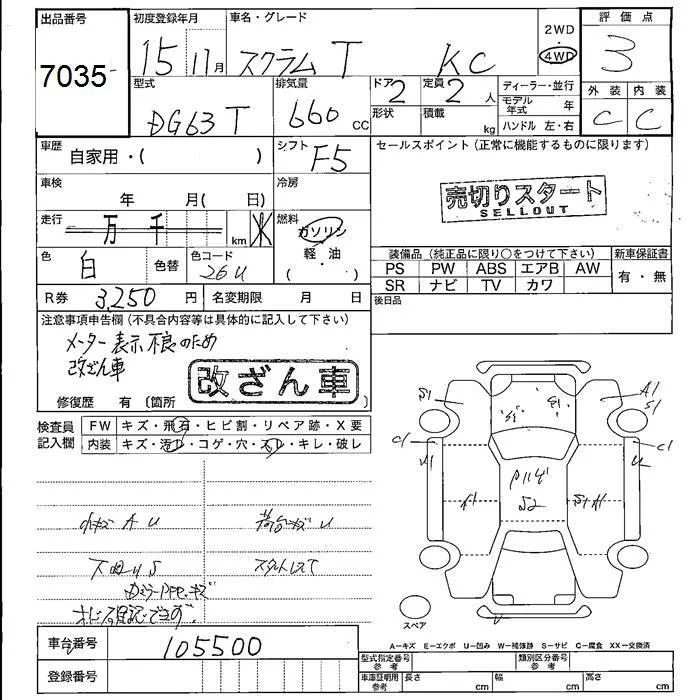 出品番号
7035
初度登録年月
15 11月
車名・グレード
スクラム T KC
2WD
4WD
評価点
3
外装 内装
C C
型式
DG63T
排気量
660 cc
ドア
2
形状
定員
2 人
積載
kg
ディーラー・並行
モデル年式 年
ハンドル 左・右
車歴
自家用・( )
シフト
F5
セールスポイント (正常に機能するものに限ります)
売切りスタート
SELLOUT
車検
年 月( 日)
冷房
走行
万 千 km
燃料
ガソリン
軽・油
( )
色
白
色替
色コード
26U
装備品 (純正品に限り○をつけて下さい)
PS PW ABS エアB AW
SR ナビ TV カワ
新車保証書
有・無
後日品
R券 3,250 円
名変期限 月 日
注意事項申告欄 (不具合内容等は具体的に記入して下さい)
メーター表示不良のため
改ざん車
改ざん車
修復歴 有 (箇所 )
検査員
記入欄
FW キズ・飛石・ヒビ割・リペア跡・X要
内装 キズ・汚レ・コゲ・穴・スレ・キレ・破レ
小キズ A U
荷台キズ U
下回りS
スタットレスT
キズ
S1
A1
S1
C1
A1
C1
U
A1
S2
S1 A1
スペア
A－キズ E－エクボ U－凹み W－補修跡 S－サビ C－腐食 XX－交換済
車台番号
105500
登録番号
型式指定番号
参考
類別区分番号
参考
車庫証明用
参考
長さ cm
幅 cm
高さ cm